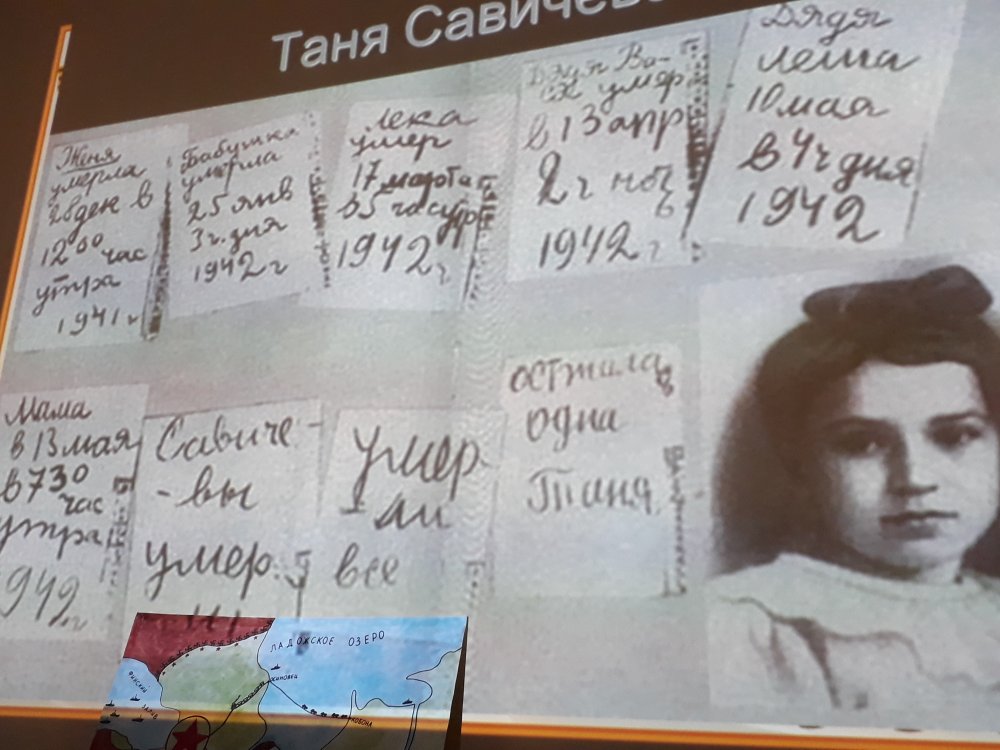 Таня Савичева
Женя
умерла
28 дек в
12 00 час
утра
1941 г
Бабушка
умерла
25 янв
3 ч. дня
1942 г
Лека
умер
17 марта
в 5 час утр
1942 г
Дядя Ва-
ся умер
в 13 апр
2 ч ноч
1942 г
Дядя
Леша
10 мая
в 4 ч дня
1942
Мама
в 13 мая
в 7 30
час
утра
1942 г
Савиче-
-вы
умер.
Умер
ли
все
осталась
одна
Таня
ЛАДОЖСКОЕ ОЗЕРО
ФИНСКИЙ
ЗАЛИВ
ОСИНОВЕЦ
КОБОНА